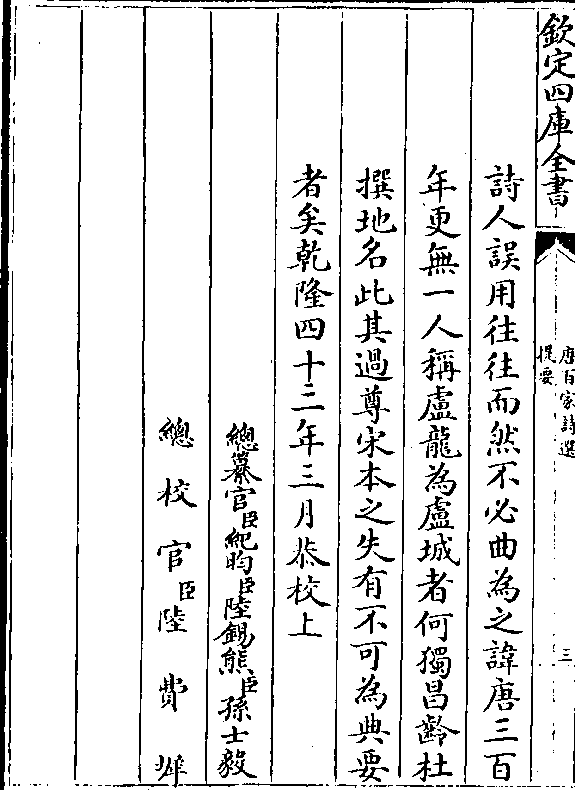 欽定四庫全書
唐百家詩選
提要
三
詩人誤用往往而然不必曲為之諱唐三百
年更無一人稱盧龍為盧城者何獨昌齡杜
撰地名此其過尊宋本之失有不可為典要
者矣乾隆四十二年三月恭校上
總纂官臣紀昀臣陸錫熊臣孫士毅
總校官臣陸費墀